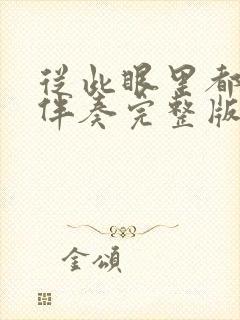 从此眼里都
伴奏完整版
金頌